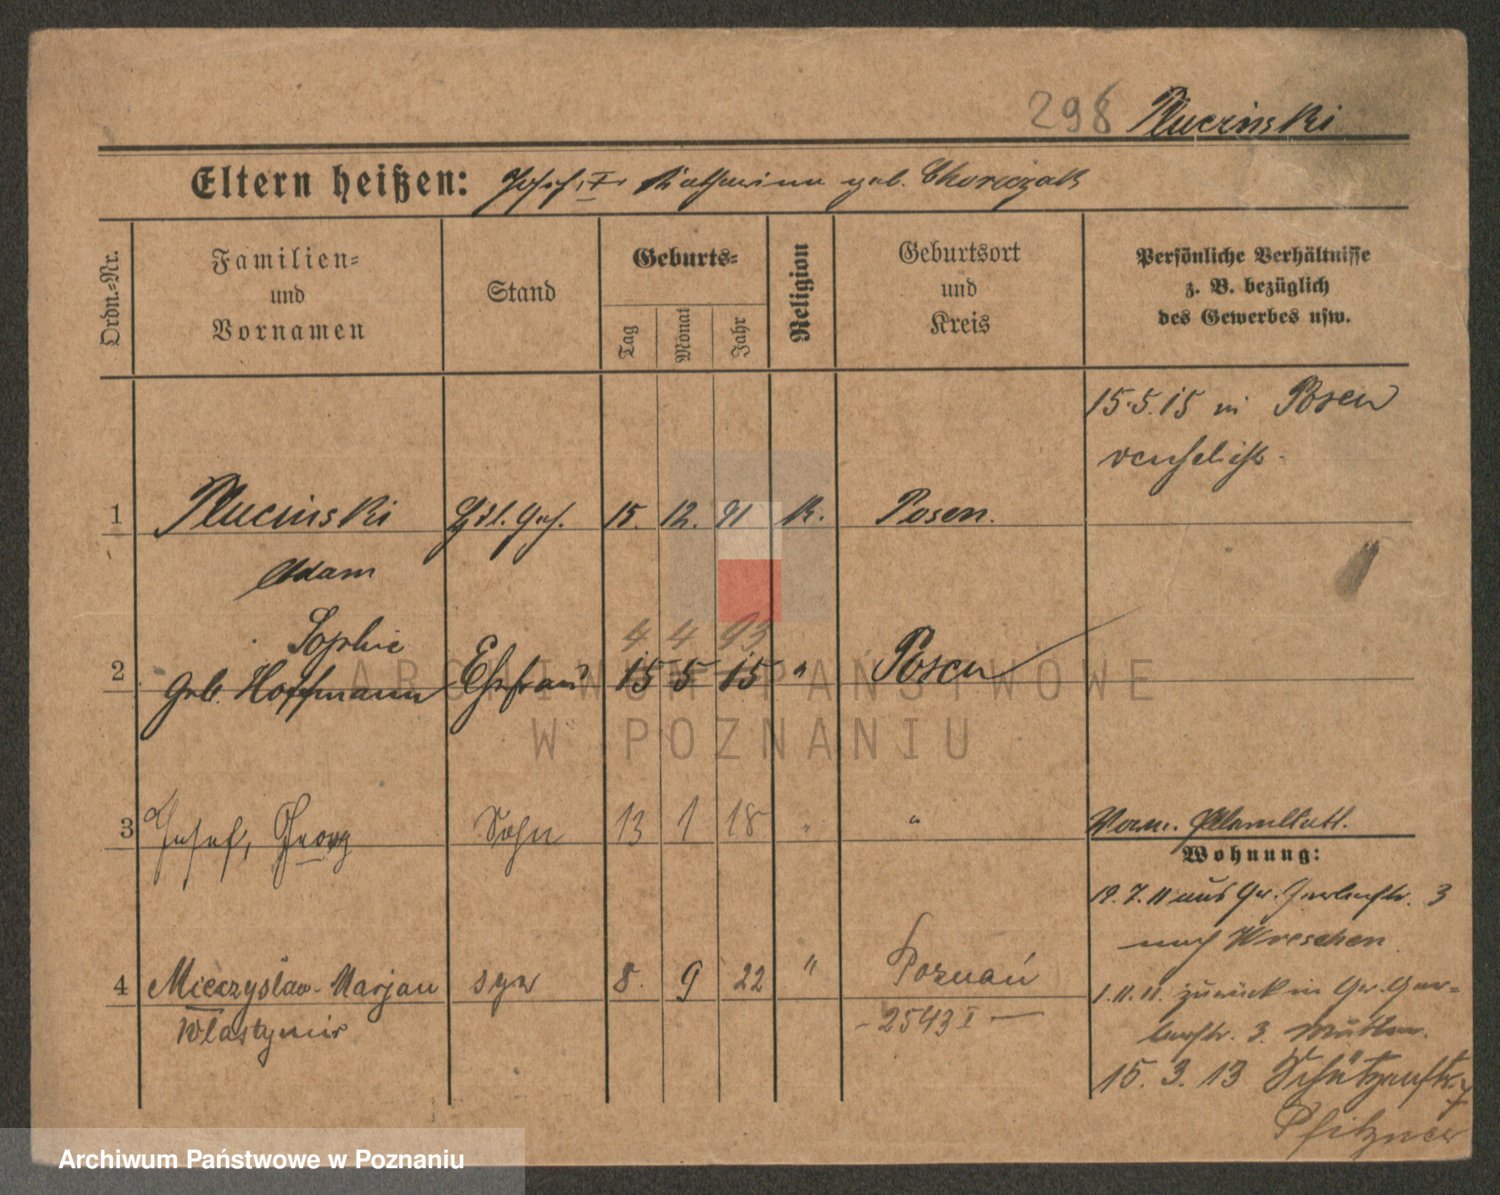 298 Plucinski
Eltern heißen: Josef I. Katharina geb.
Ordn.-Nr.
Familien-
und
Vornamen
Stand
Geburts-
Tag
Monat
Jahr
Religion
Geburtsort
und
Kreis
Persönliche Verhältnisse
z. B. bezüglich
des Gewerbes usw.
15.5.15 in Posen
verehelicht.
1 Plucinski 15. 12. 91 K. Posen.
Adam
Sophie 4 4 93
2 geb. Hoffmann Ehefrau 15 5 15 " Posen
3 Josef, Georg Sohn 13 1 18 " "
Wohnung:
19.7.11 aus Gr. Gerberstr. 3
nach Wreschen.
4 Mieczysław-Marjan syn 8. 9 22 " Poznań
Włastymir - 2543 I -
1.11.11. zurück in Gr. Ger-
berstr. 3. Mutter.
15. 3. 13 Schützenstr. 7
Pfitzner
ARCHIWUM PAŃSTWOWE
W POZNANIU
Archiwum Państwowe w Poznaniu